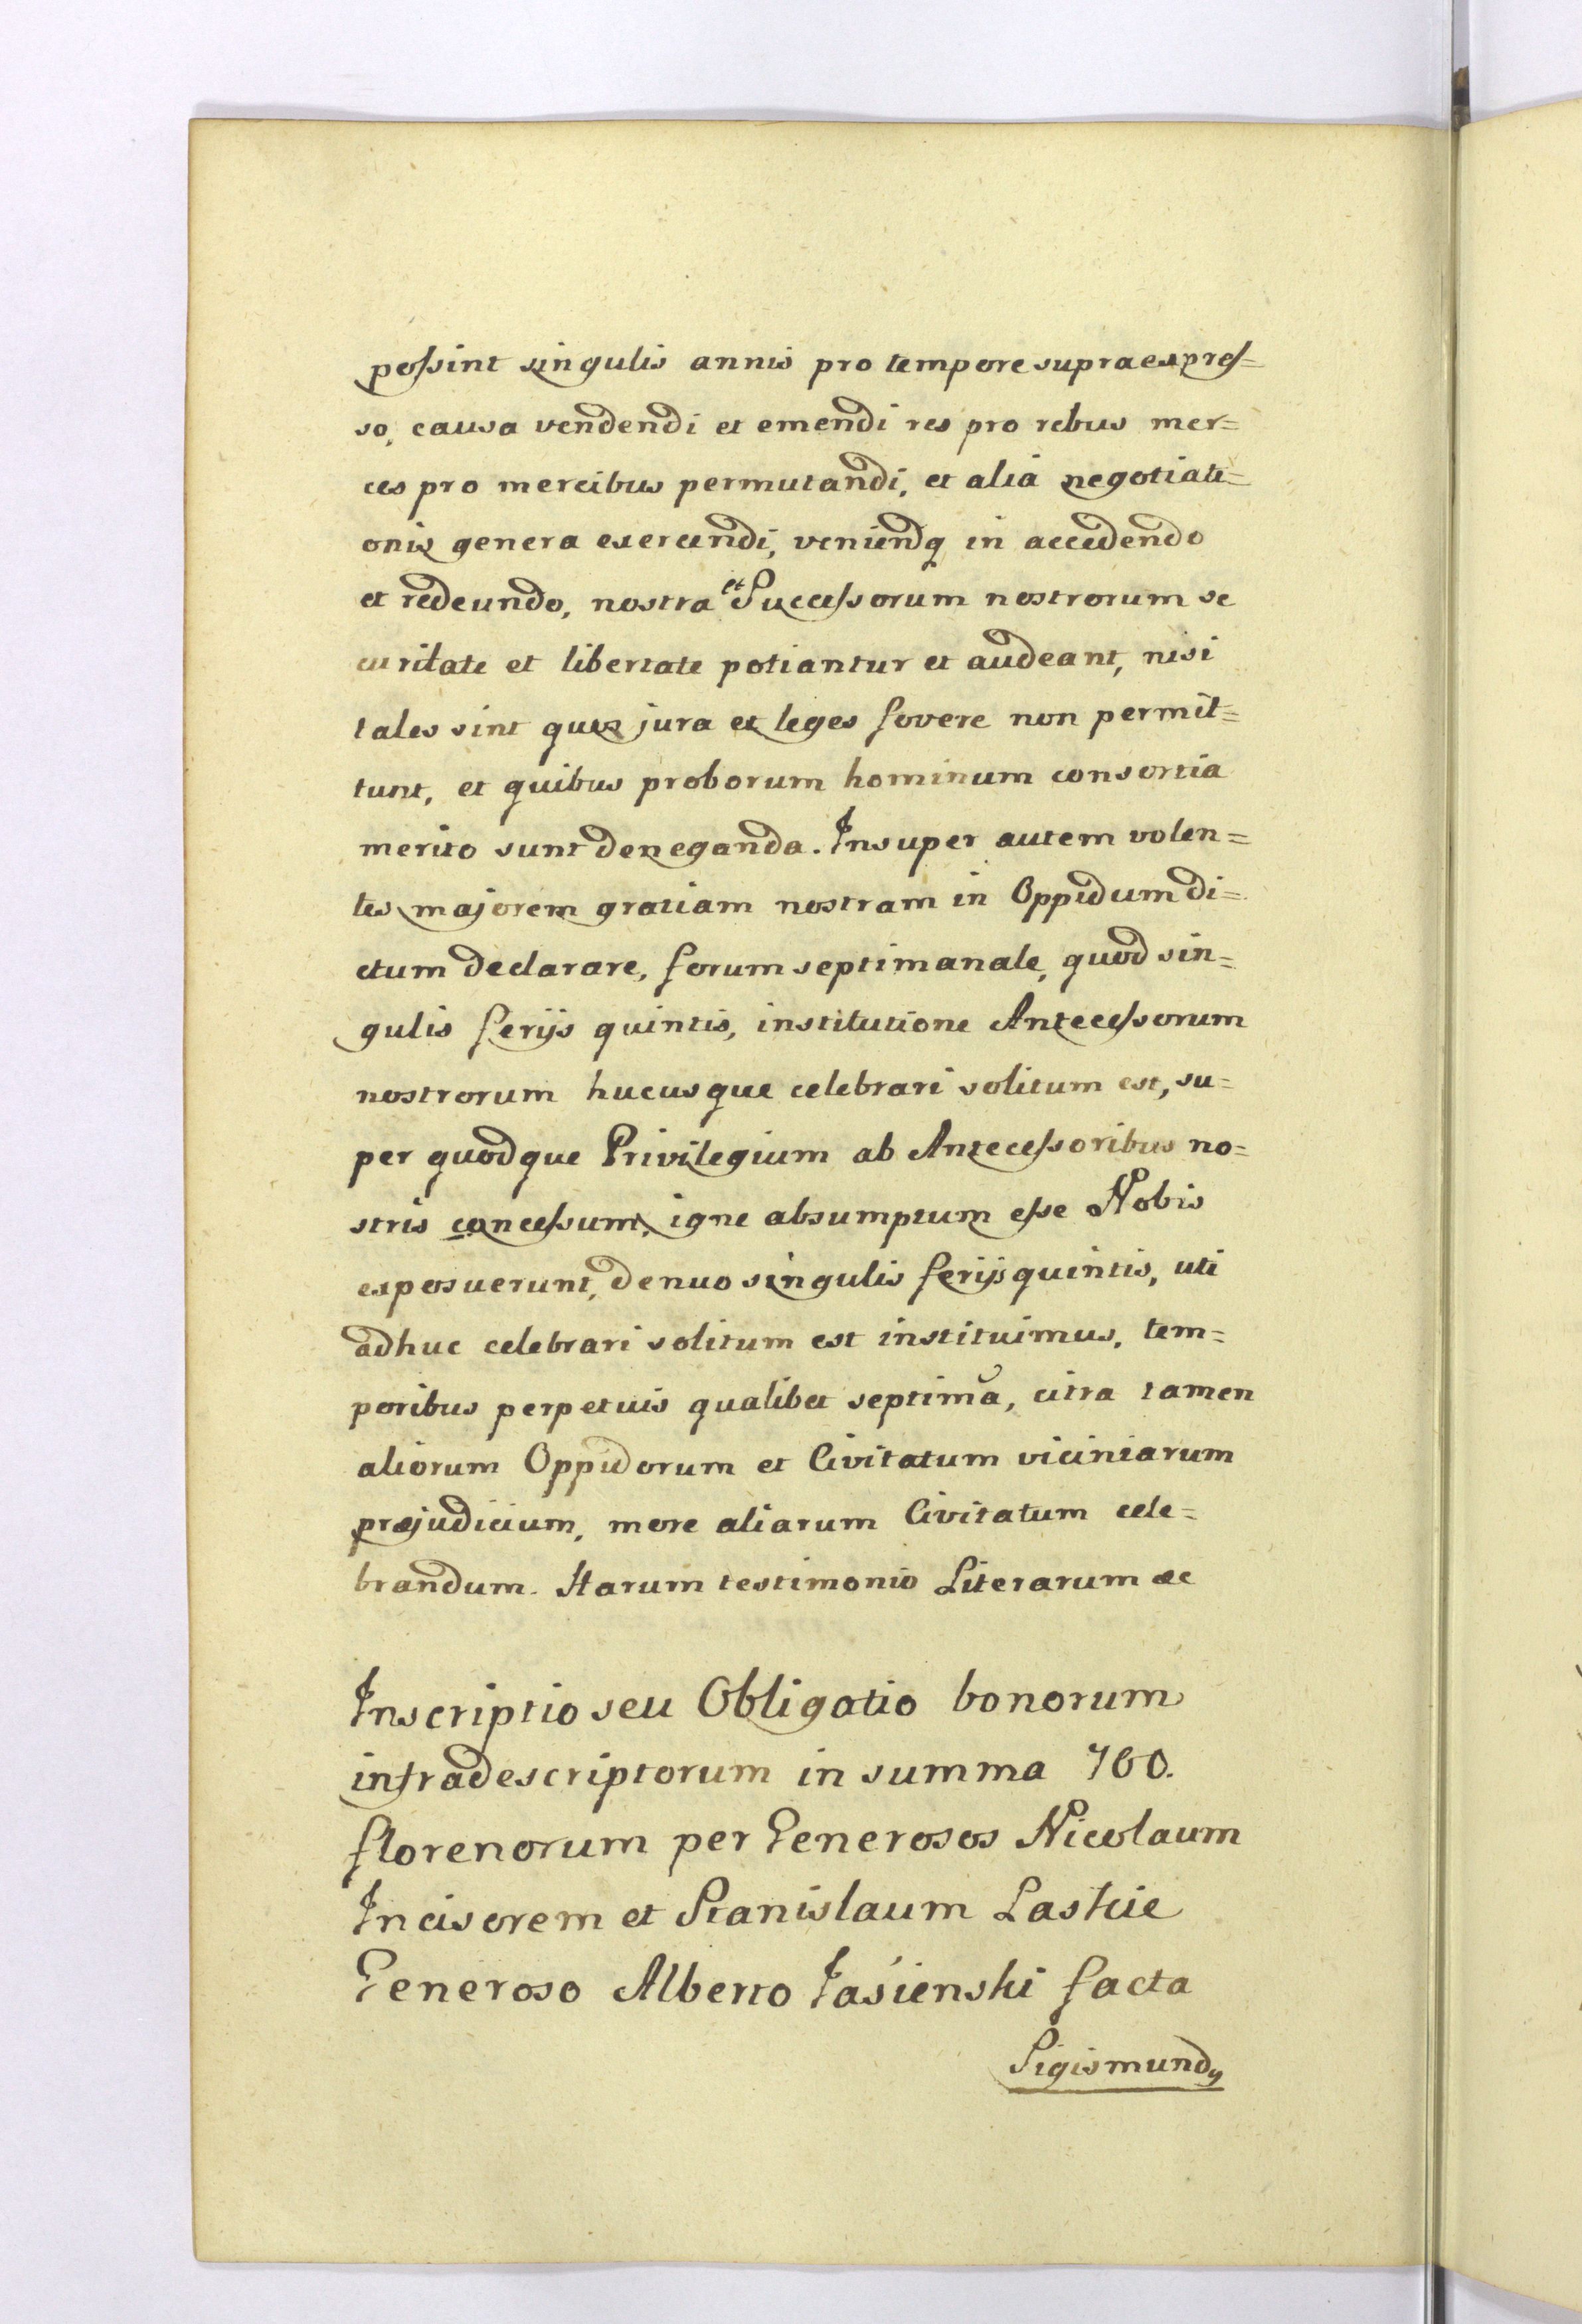 possint singulis annis pro tempore supraexpres=
so, causa vendendi et emendi res pro rebus mer=
ces pro mercibus permutandi, et alia negotiati=
onis genera exercendi, veniendq in accedendo
et redeundo, nostra et Successorum nostrorum se
curitate et libertate potiantur et audeant, nisi
tales sint quos jura et leges fovere non permit=
tunt, et quibus proborum hominum consortia
merito sunt deneganda. Insuper autem volen=
tes majorem gratiam nostram in Oppidum di=
ctum declarare, forum septimanale, quod sin=
gulis ferijs quintis, institutione Antecessorum
nostrorum hucusque celebrari solitum est, su=
per quodque Privilegium ab Antecessoribus no=
stris concessum, igne absumptum esse Nobis
exposuerunt, denuo singulis ferijs quintis, uti
adhuc celebrari solitum est instituimus, tem=
poribus perpetuis qualibet septima, citra tamen
aliorum Oppidorum et Civitatum viciniarum
præjudicium, more aliarum Civitatum cele=
brandum. Harum testimonio Literarum &c
Inscriptio seu Obligatio bonorum
infradescriptorum in summa 760.
florenorum per Generosos Nicolaum
Incisorem et Stanislaum Laskie
Generoso Alberto Jasienski facta
Sigismundq